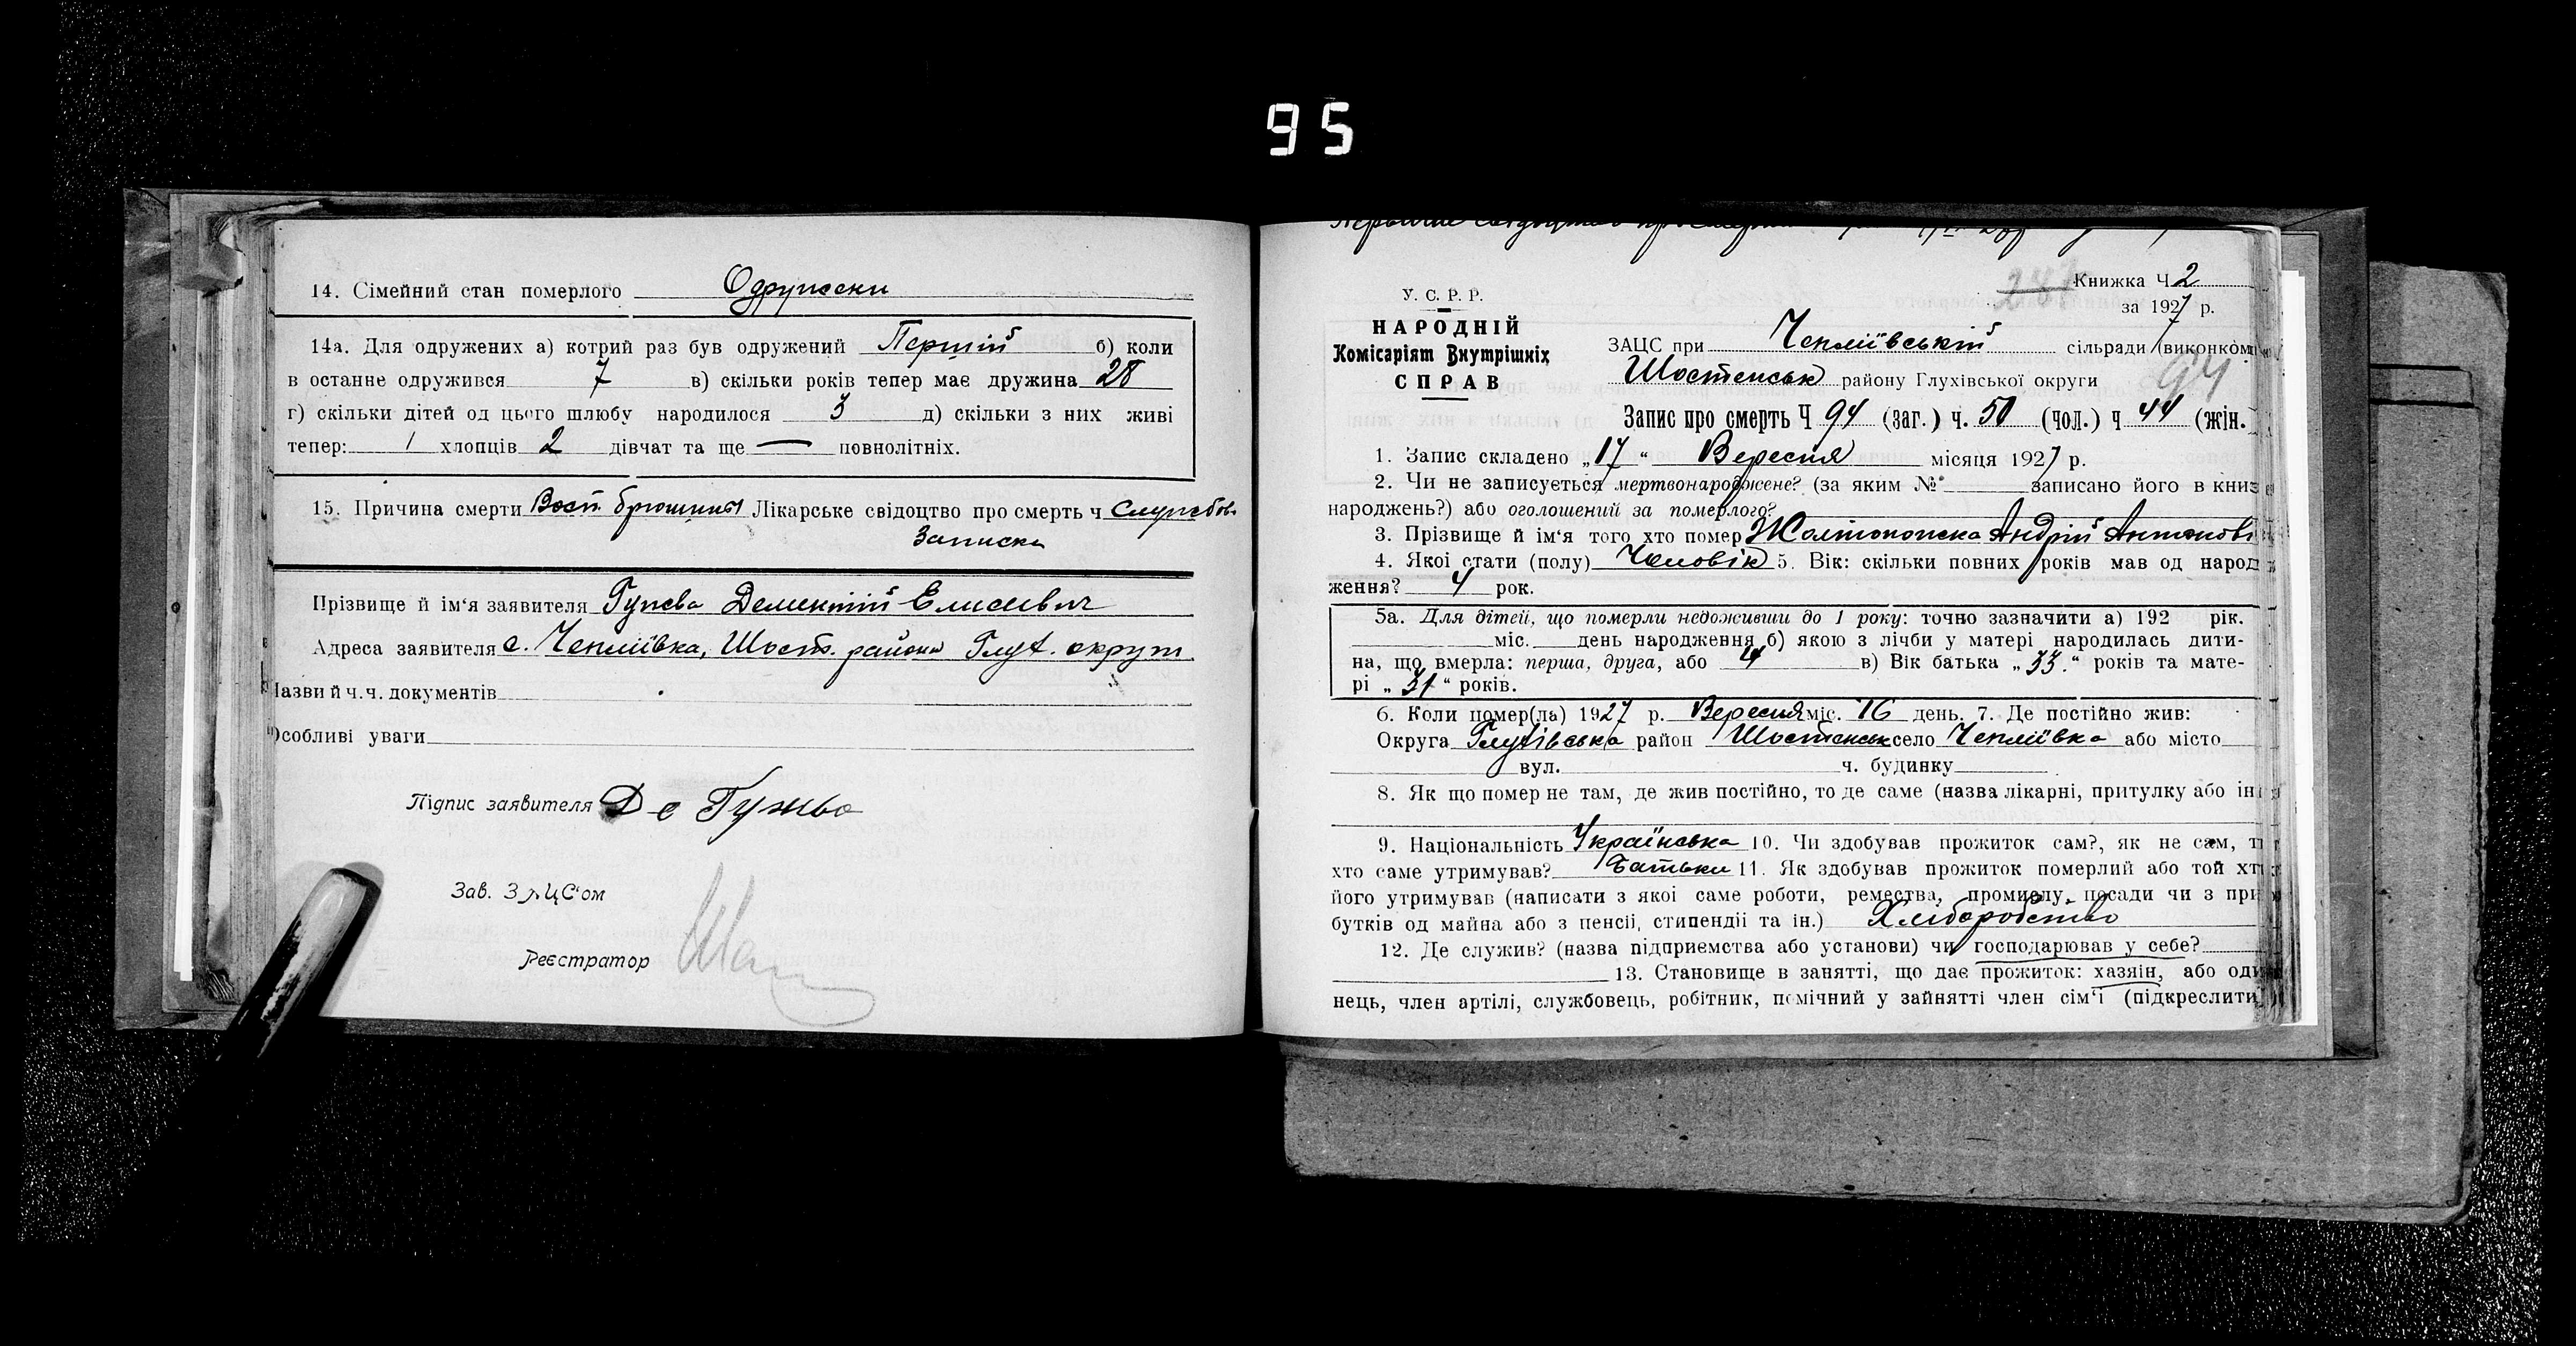 95
14. Сімейний стан померлого Одружени
14а. Для одружених а) котрий раз був одружений Першій б) коли
в останне одружився 7 в) скільки років тепер має дружина 28
г) скільки дітей од цього шлюбу народилося 3 д) скільки з них живі
тепер: 1 хлопців 2 дівчат та ще — повнолітніх.
15. Причина смерти Восп. брюшины Лікарське свідоцтво про смерть ч Службов.
Записка
Прізвище й ім'я заявителя Гужва Дементій Елисеевич
Адреса заявителя с. Чепліївка, Шост. району Глух. округи
Назви й ч.ч. документів
Особливі уваги
Підпис заявителя Де Гужва
Зав. ЗАЦС'ом
Реєстратор
Книжка Ч 2
за 1927 р.
У. С. Р. Р.
НАРОДНІЙ
Комісаріят Внутрішніх
СПРАВ
ЗАЦС при Чепліївській сільраді (виконком
Шостенськ району Глухівської округи
94
Запис про смерть Ч 94 (заг.) ч. 50 (чол.) ч 44 (жін.
1. Запис складено „17“ Вересня місяця 1927 р.
2. Чи не записується мертвонароджене? (за яким № записано його в книз
народжень?) або оголошений за померлого?
3. Прізвище й ім'я того хто помер Жолтоножка Андрій Антонові
4. Якої стати (полу) Чоловік 5. Вік: скільки повних років мав од народ
ження? 4 рок.
5а. Для дітей, що померли недоживши до 1 року: точно зазначити а) 192 рік.
міс. день народження б) якою з лічби у матері народилась дити-
на, що вмерла: перша, друга, або 4 в) Вік батька „33.“ років та мате-
рі „31“ років.
6. Коли помер(ла) 1927 р. Вересня міс. 16 день. 7. Де постійно жив:
Округа Глухівська район Шостенськ село Чепліївка або місто
вул. ч. будинку
8. Як що помер не там, де жив постійно, то де саме (назва лікарні, притулку або ін
9. Національність Українська 10. Чи здобував прожиток сам?, як не сам, т
хто саме утримував? Батьки 11. Як здобував прожиток померлий або той хт
його утримував (написати з якої саме роботи, ремества, промислу, посади чи з при
бутків од майна або з пенсії, стипендії та ін.) Хліборобство
12. Де служив? (назва підприемства або установи) чи господарював у себе?
13. Становище в занятті, що дає прожиток: хазяін, або оди
нець, член артілі, службовець, робітник, помічний у зайнятті член сім'ї (підкреслити